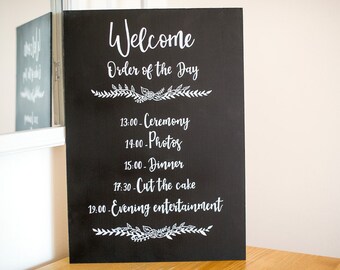 Welcome
Order of the Day
13:00 - Ceremony
14:00 - Photos
15:00 - Dinner
17:30 - Cut the cake
19:00 - Evening entertainment